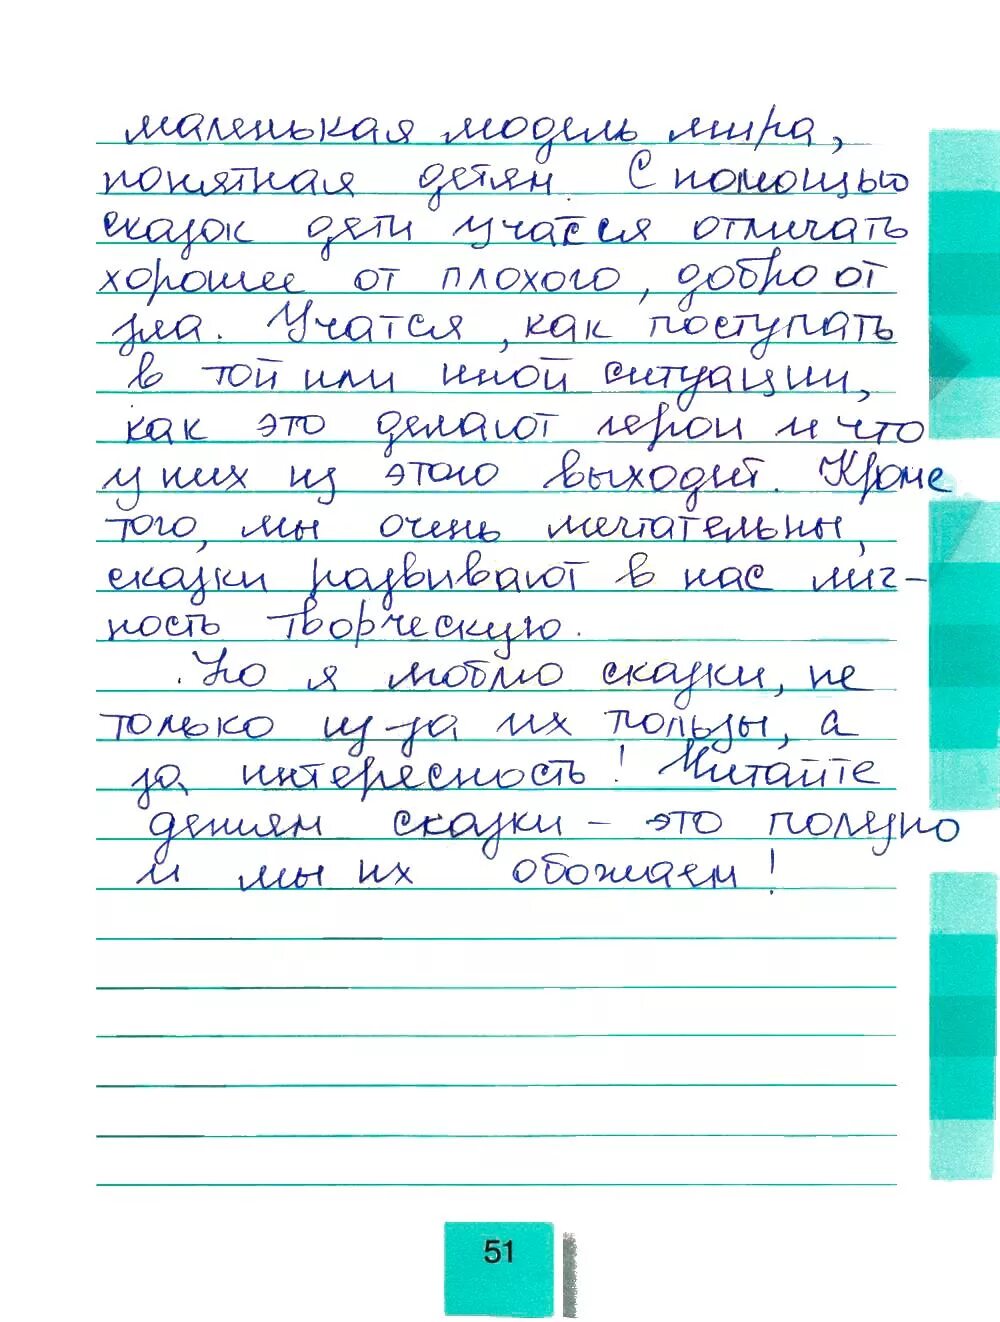 маленькая модель мира,
понятная детям. С помощью
сказок дети учатся отличать
хорошее от плохого, добро от
зла. Учатся, как поступать
в той или иной ситуации,
как это делают герои и что
у них из этого выходит. Кроме
того, мы очень мечтательны,
сказки развивают в нас лич-
ность творческую.
Но я люблю сказки, не
только из-за их пользы, а
за интересность! Читайте
детям сказки - это полезно
и мы их обожаем!
51